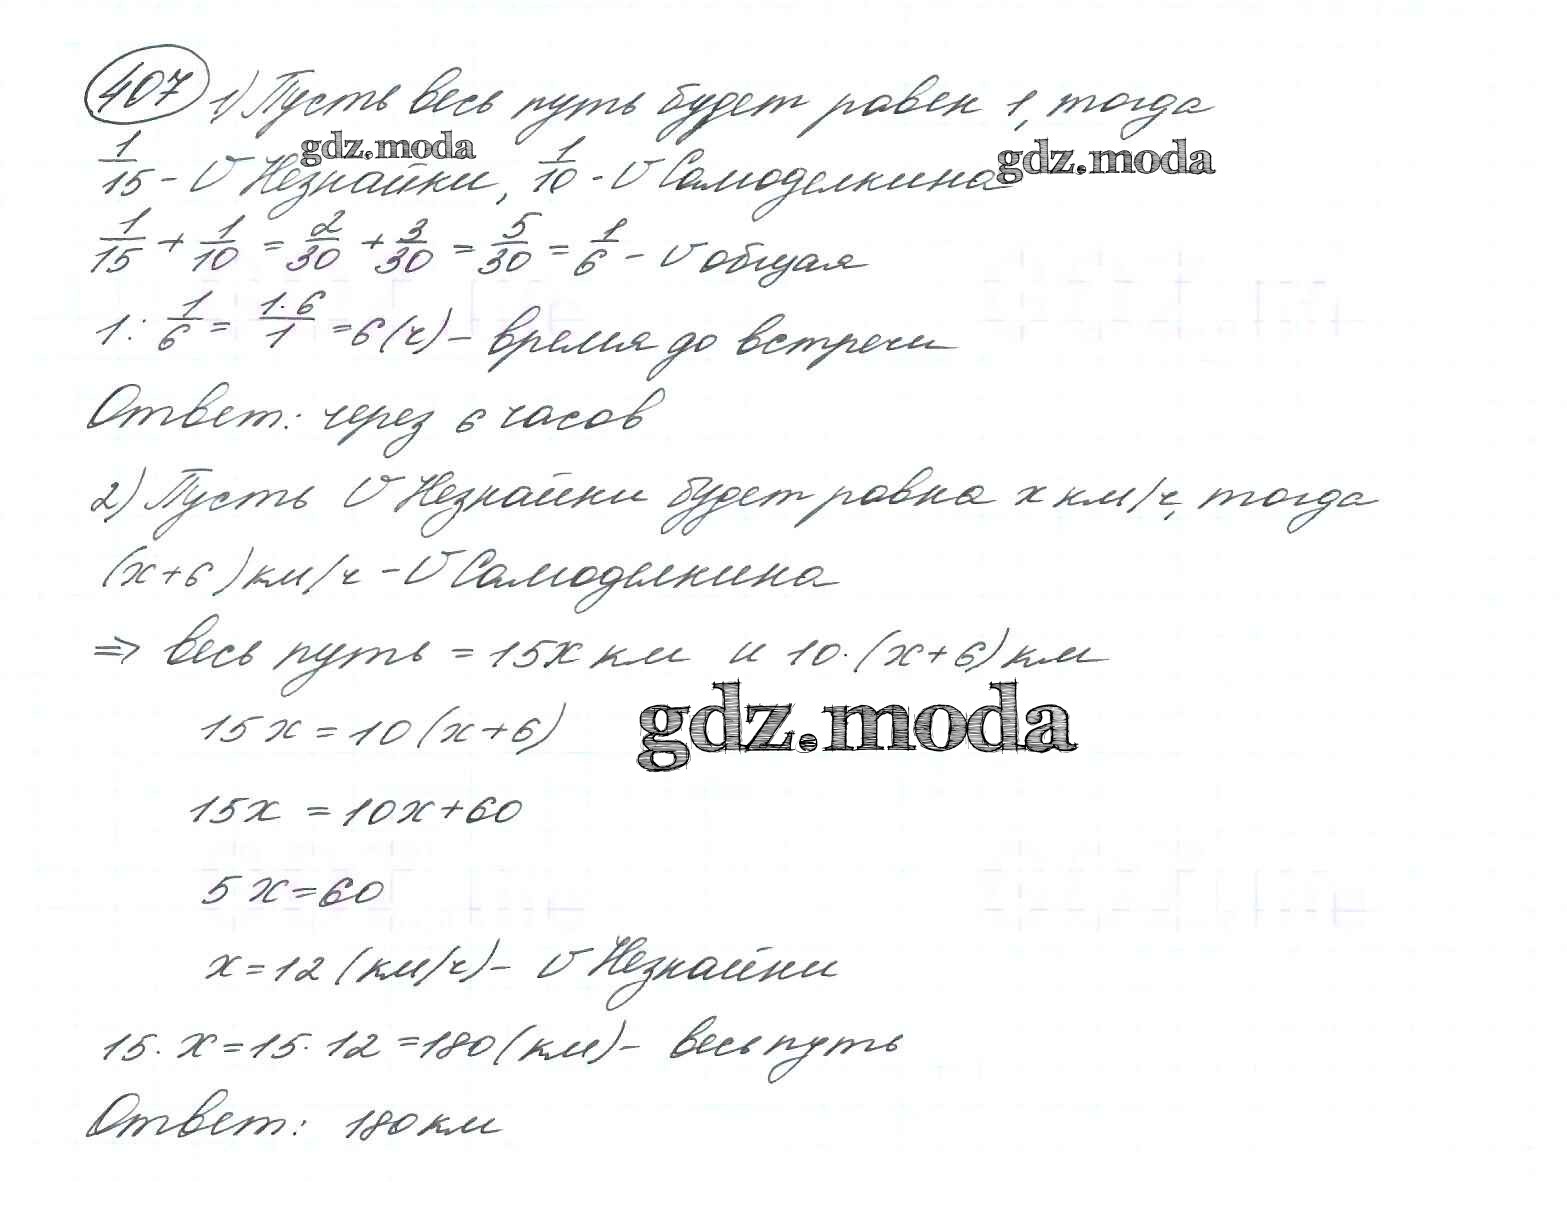 407 1) Пусть весь путь будет равен 1, тогда
gdz.moda gdz.moda
1/15 - V Незнайки, 1/10 - V Самоделкина
1/15 + 1/10 = 2/30 + 3/30 = 5/30 = 1/6 - V общая
1 : 1/6 = 1·6/1 = 6 (ч) - время до встречи
Ответ: через 6 часов
2) Пусть V Незнайки будет равна x км/ч, тогда
(x+6) км/ч - V Самоделкина
⇒ весь путь = 15x км и 10·(x+6) км
15x = 10(x+6)
gdz.moda
15x = 10x+60
5x=60
x=12 (км/ч) - V Незнайки
15·x=15·12=180 (км) - весь путь
Ответ: 180 км